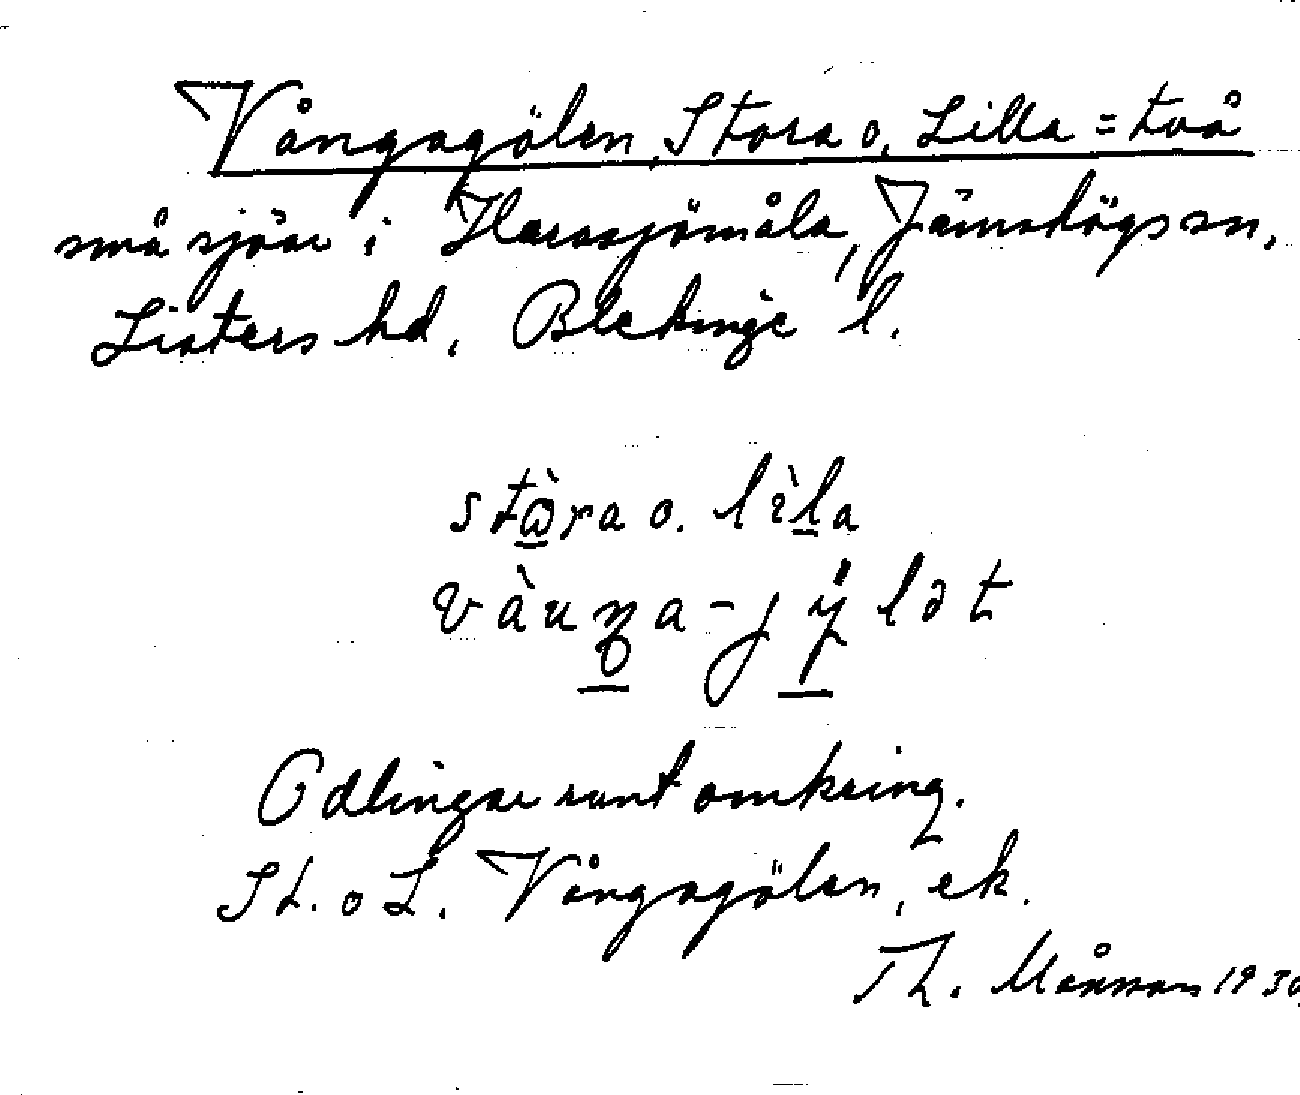 Vångagölen, Stora o. Lilla = två
små sjöar i Harasjömåla, Jämshögs sn,
Listers hd, Blekinge l.
stὼra o. lìla
vàuŋa-jÿlət
Odlingar runt omkring.
St. o L. Vångagölen, ek.
Th. Månsson 1930